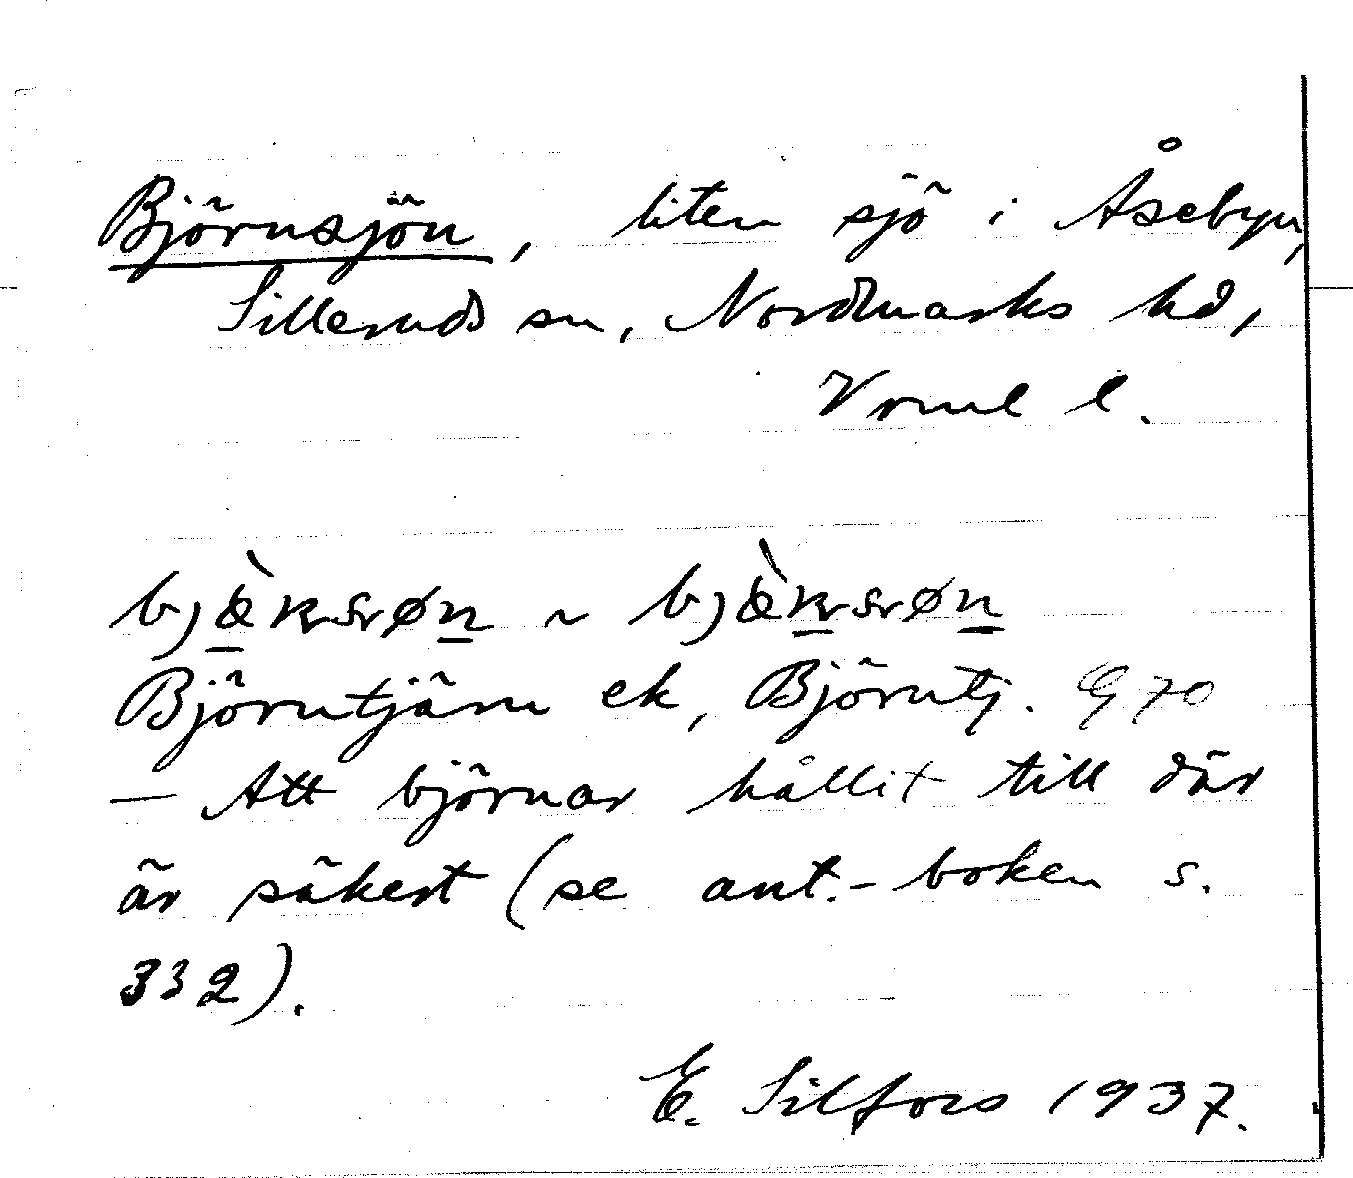 Björnsjön, liten sjö i Åsebyn,
Silleruds sn, Nordmarks hd,
Vrml l.
Björntjärn ek, Björntj. G 70
— Att björnar hållit till där
är säkert (se ant.-boken s.
332).
E. Silfors 1937.